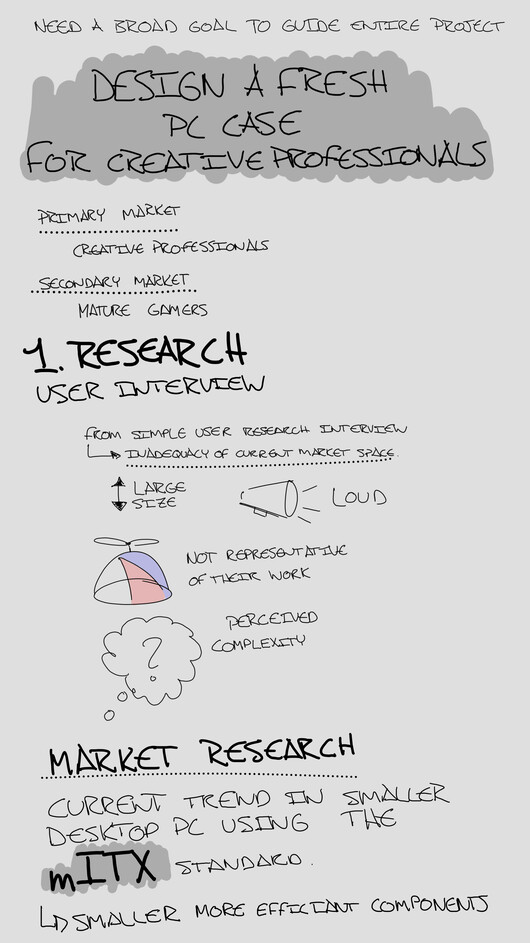 NEED A BROAD GOAL TO GUIDE ENTIRE PROJECT
DESIGN A FRESH
PC CASE
FOR CREATIVE PROFESSIONALS
PRIMARY MARKET
CREATIVE PROFESSIONALS
SECONDARY MARKET
MATURE GAMERS
1. RESEARCH
USER INTERVIEW
FROM SIMPLE USER RESEARCH INTERVIEW
INADEQUACY OF CURRENT MARKET SPACE.
LARGE
SIZE
LOUD
NOT REPRESENTATIVE
OF THEIR WORK
PERCEIVED
COMPLEXITY
?
MARKET RESEARCH
CURRENT TREND IN SMALLER
DESKTOP PC USING THE
mITX STANDARD.
SMALLER MORE EFFICIANT COMPONENTS